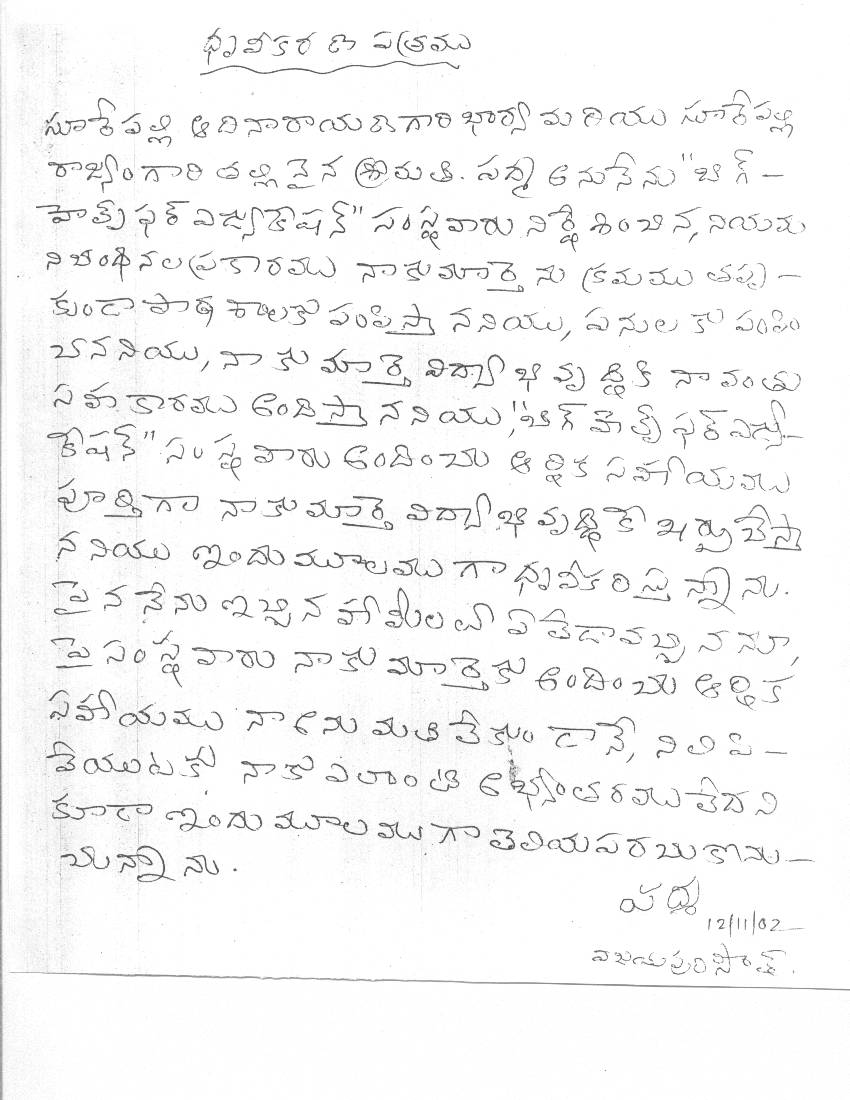 ధృవీకరణ పత్రము
సూరేపల్లి ఆదినారాయణగారి భార్య మరియు సూరేపల్లి
రాజ్యంగారి తల్లినైన శ్రీమతి. పద్మ అను నేను "బిగ్-
హెల్ప్ ఫర్ ఎడ్యుకేషన్" సంస్థవారు నిర్దేశించిన, నియమ
నిబంధనల ప్రకారము నా కుమార్తెను క్రమము తప్ప-
కుండా పాఠశాలకు పంపిస్తాననియు, పనులకు పంపిం
చననియు, నా కుమార్తె విద్యాభివృద్ధికి నావంతు
సహకారము అందిస్తాననియు, "బిగ్ హెల్ప్ ఫర్ ఎడ్యు-
కేషన్" సంస్థ వారు అందించు ఆర్థిక సహాయము
పూర్తిగా నా కుమార్తె విద్యాభివృద్ధికే ఖర్చు చేస్తా
ననియు ఇందుమూలముగా ధృవీకరిస్తున్నాను.
పైన నేను ఇచ్చిన హామీలలో ఏ తేడావచ్చినను,
పై సంస్థ వారు నా కుమార్తెకు అందించు ఆర్థిక
సహాయము నా అనుమతి లేకుండానే, నిలిపి-
వేయుటకు నాకు ఎలాంటి అభ్యంతరము లేదని
కూడా ఇందుమూలముగా తెలియపరచుకొను-
చున్నాను.
పద్మ
12/11/02
విజయపురి సౌత్.